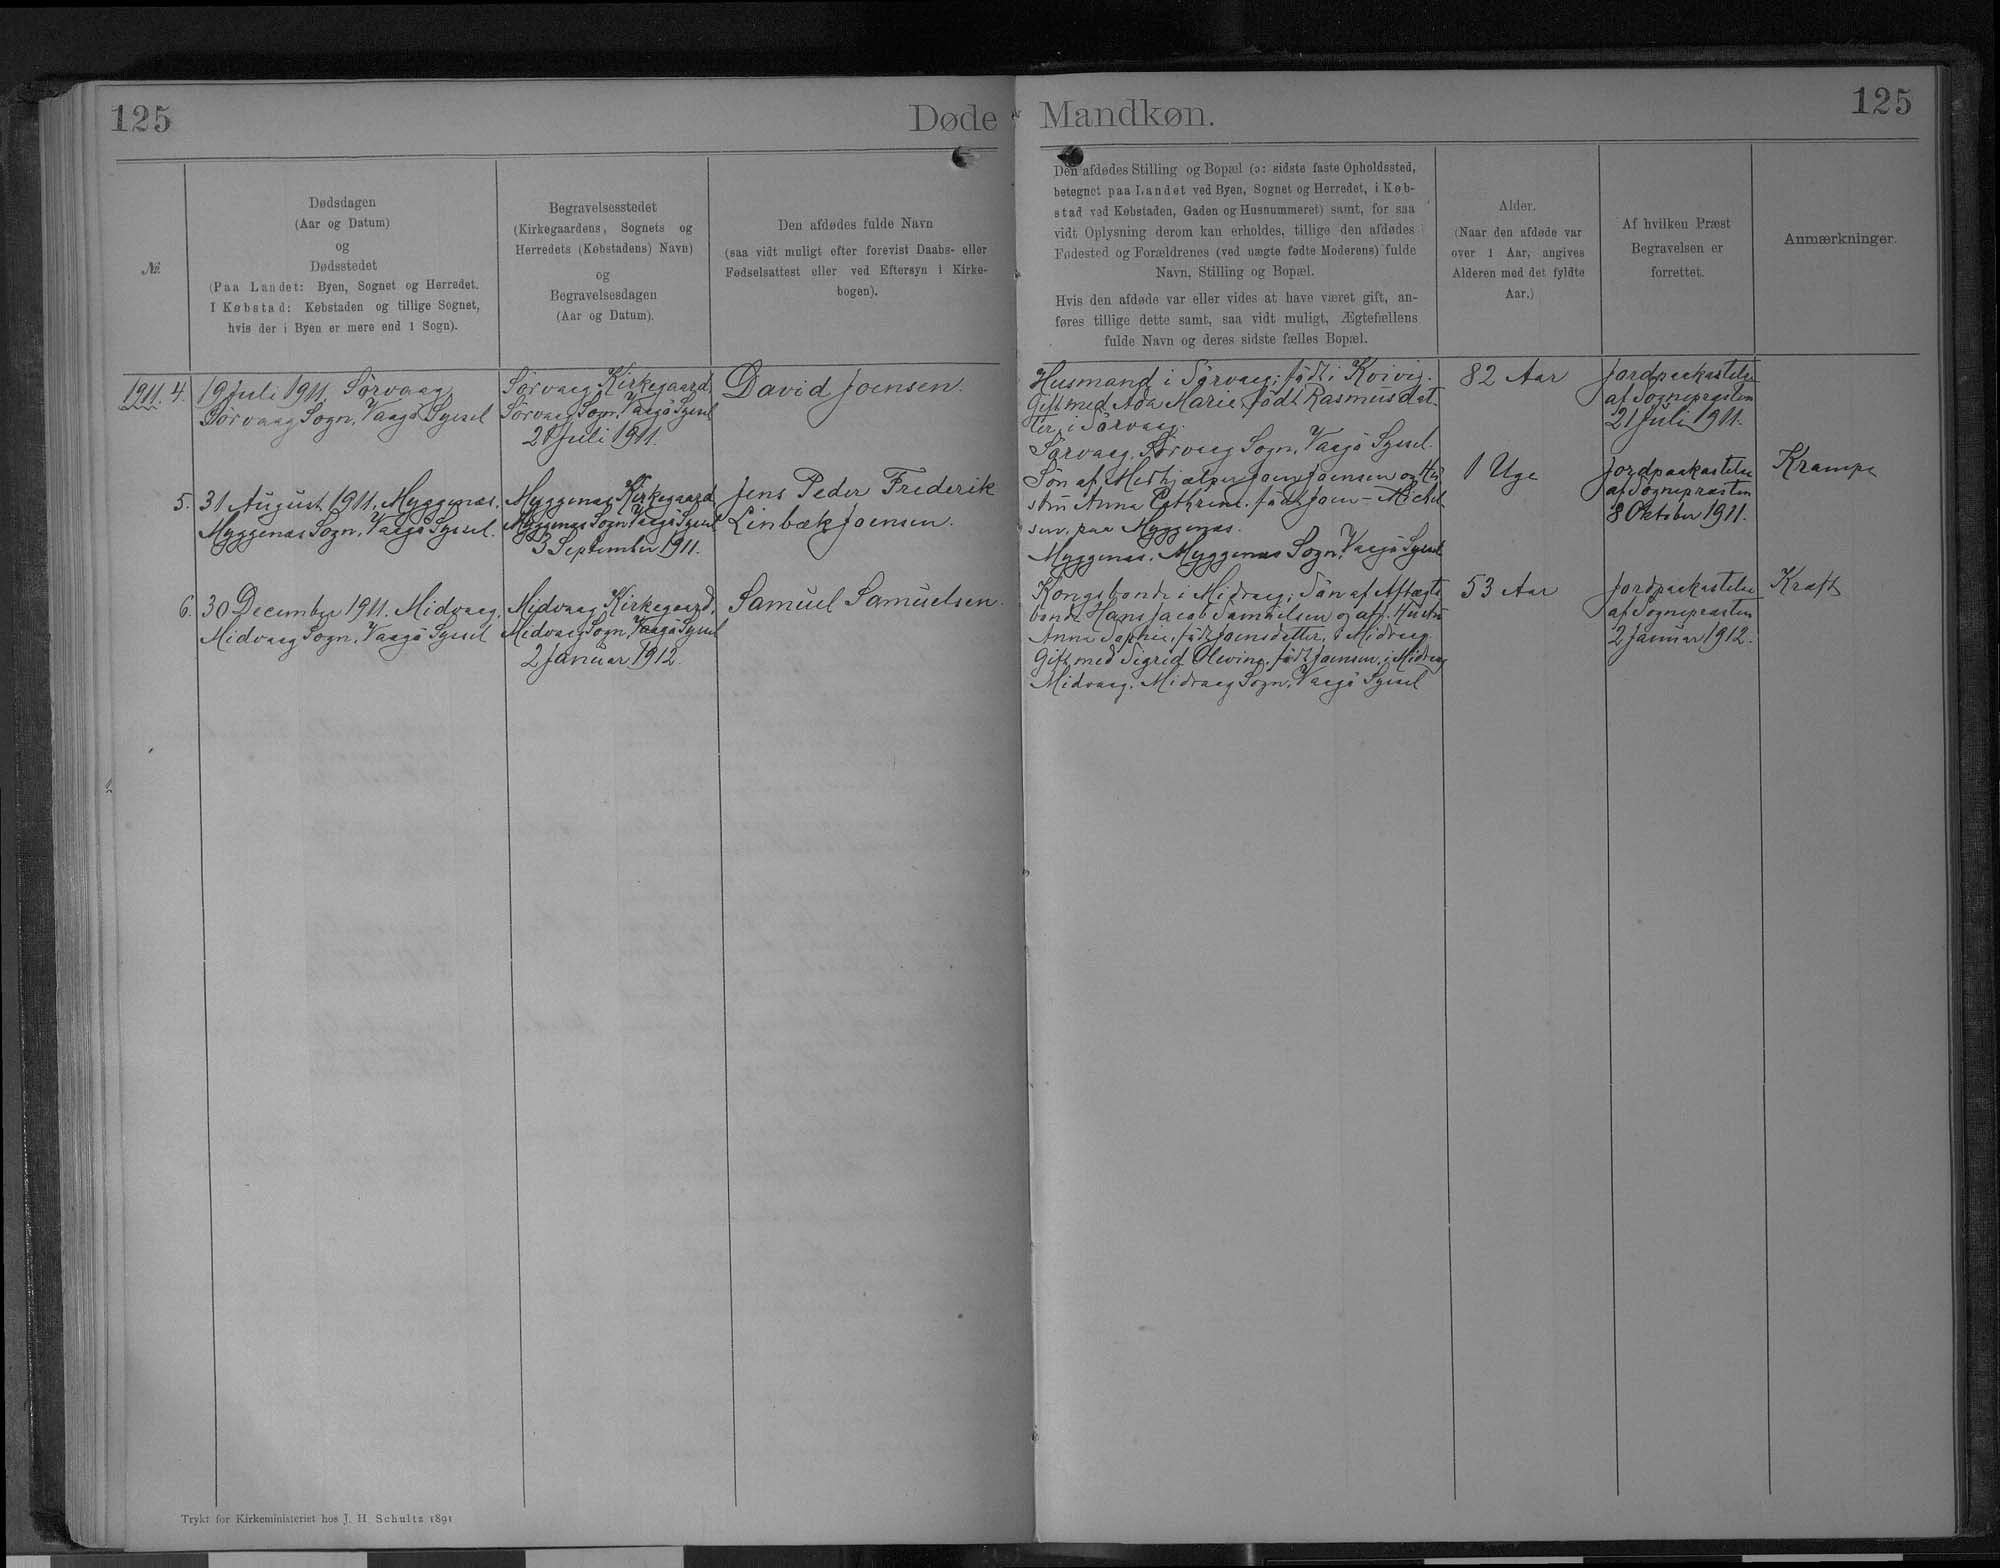 125
Døde
Mandkøn.
125
№
Dødsdagen
(Aar og Datum)
og
Dødsstedet
(Paa Landet: Byen, Sognet og Herredet.
I Købstad: Købstaden og tillige Sognet,
hvis der i Byen er mere end 1 Sogn).
Begravelsesstedet
(Kirkegaardens, Sognets og
Herredets (Købstadens) Navn)
og
Begravelsesdagen
(Aar og Datum).
Den afdødes fulde Navn
(saa vidt muligt efter forevist Daabs- eller
Fødselsattest eller ved Eftersyn i Kirke-
bogen).
Den afdødes Stilling og Bopæl (ɔ: sidste faste Opholdssted,
betegnet paa Landet ved Byen, Sognet og Herredet, i Køb-
stad ved Købstaden, Gaden og Husnummeret) samt, for saa
vidt Oplysning derom kan erholdes, tillige den afdødes
Fødested og Forældrenes (ved uægte fødte Moderens) fulde
Navn, Stilling og Bopæl.
Hvis den afdøde var eller vides at have været gift, an-
føres tillige dette samt, saa vidt muligt, Ægtefællens
fulde Navn og deres sidste fælles Bopæl.
Alder.
(Naar den afdøde var
over 1 Aar, angives
Alderen med det fyldte
Aar.)
Af hvilken Præst
Begravelsen er
forrettet.
Anmærkninger.
1911. 4.
19 Juli 1911. Sørvaag,
Sørvaag Sogn, Vaagø Syssel
Sørvaag Kirkegaard,
Sørvaag Sogn, Vaagø Syssel
21 Juli 1911.
David Joensen.
Husmand i Sørvaag; født i Koivig.
Gift med Ada Marie, født Rasmusdat-
ter, i Sørvaag.
Sørvaag, Sørvaag Sogn, Vaagø Syssel.
82 Aar
Jordpaakastelse
af Sognepræsten
21 Juli 1911.
5.
31 August 1911, Myggenæs,
Myggenæs Sogn, Vaagø Syssel.
Myggenæs Kirkegaard
Myggenæs Sogn Vaagø Syssel
3 September 1911.
Jens Peder Frederik
Linbæk Joensen.
Søn af Medhjælper Joen Joensen og Hu-
stru Anna Cathrine, født Joen-Michel
sen, paa Myggenæs.
Myggenæs, Myggenæs Sogn, Vaagø Syssel
1 Uge
Jordpaakastelse
af Sognepræsten
8 Oktober 1911.
Krampe
6.
30 December 1911. Midvaag,
Midvaag Sogn, Vaagø Syssel
Midvaag Kirkegaard,
Midvaag Sogn, Vaagø Syssel
2 Januar 1912.
Samuel Samuelsen.
Kongsbonde i Midvaag; Søn af Aftægts
bonde Hans Jacob Samuelsen og afd. Hustru
Anna Sophie, født Joensdatter, i Midvaag.
Gift med Sigrid Olevine, født Joensen, i Midvaag
Midvaag, Midvaag Sogn, Vaagø Syssel
53 Aar
Jordpaakastelse
af Sognepræsten
2 Januar 1912.
Kræft
Trykt for Kirkeministeriet hos J. H. Schultz 1891